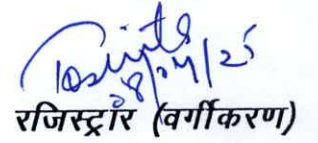 08/04/25
रजिस्ट्रार (वर्गीकरण)